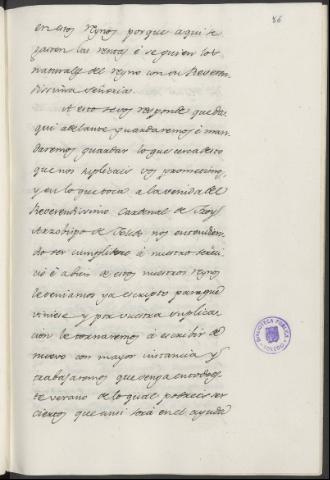 86
en estos reynos porque aqui se
gasten las rentas é se guien los
naturales del reyno con su Reveren
dissima Señoria.
A esto se vos responde que da
qui adelante guardaremos é man
daremos guardar lo que cerca desto
que nos suplicais vos prometimos,
y en lo que toca a la venida del
Reverendissimo Cardenal de Croy
Arzobispo de Toledo, nos entendien
do ser cumplidero á nuestro servi
cio é a bien de estos nuestros reynos
le teniamos ya escripto para que
viniese y por vuestra suplica
cion le tornaremos á escribir de
nuevo con mayor instancia y
trabajaremos que venga en todo es
te verano de lo qual podeis ser
ciertos que ansi será en el ayuda
BIBLIOTECA PÚBLICA
TOLEDO